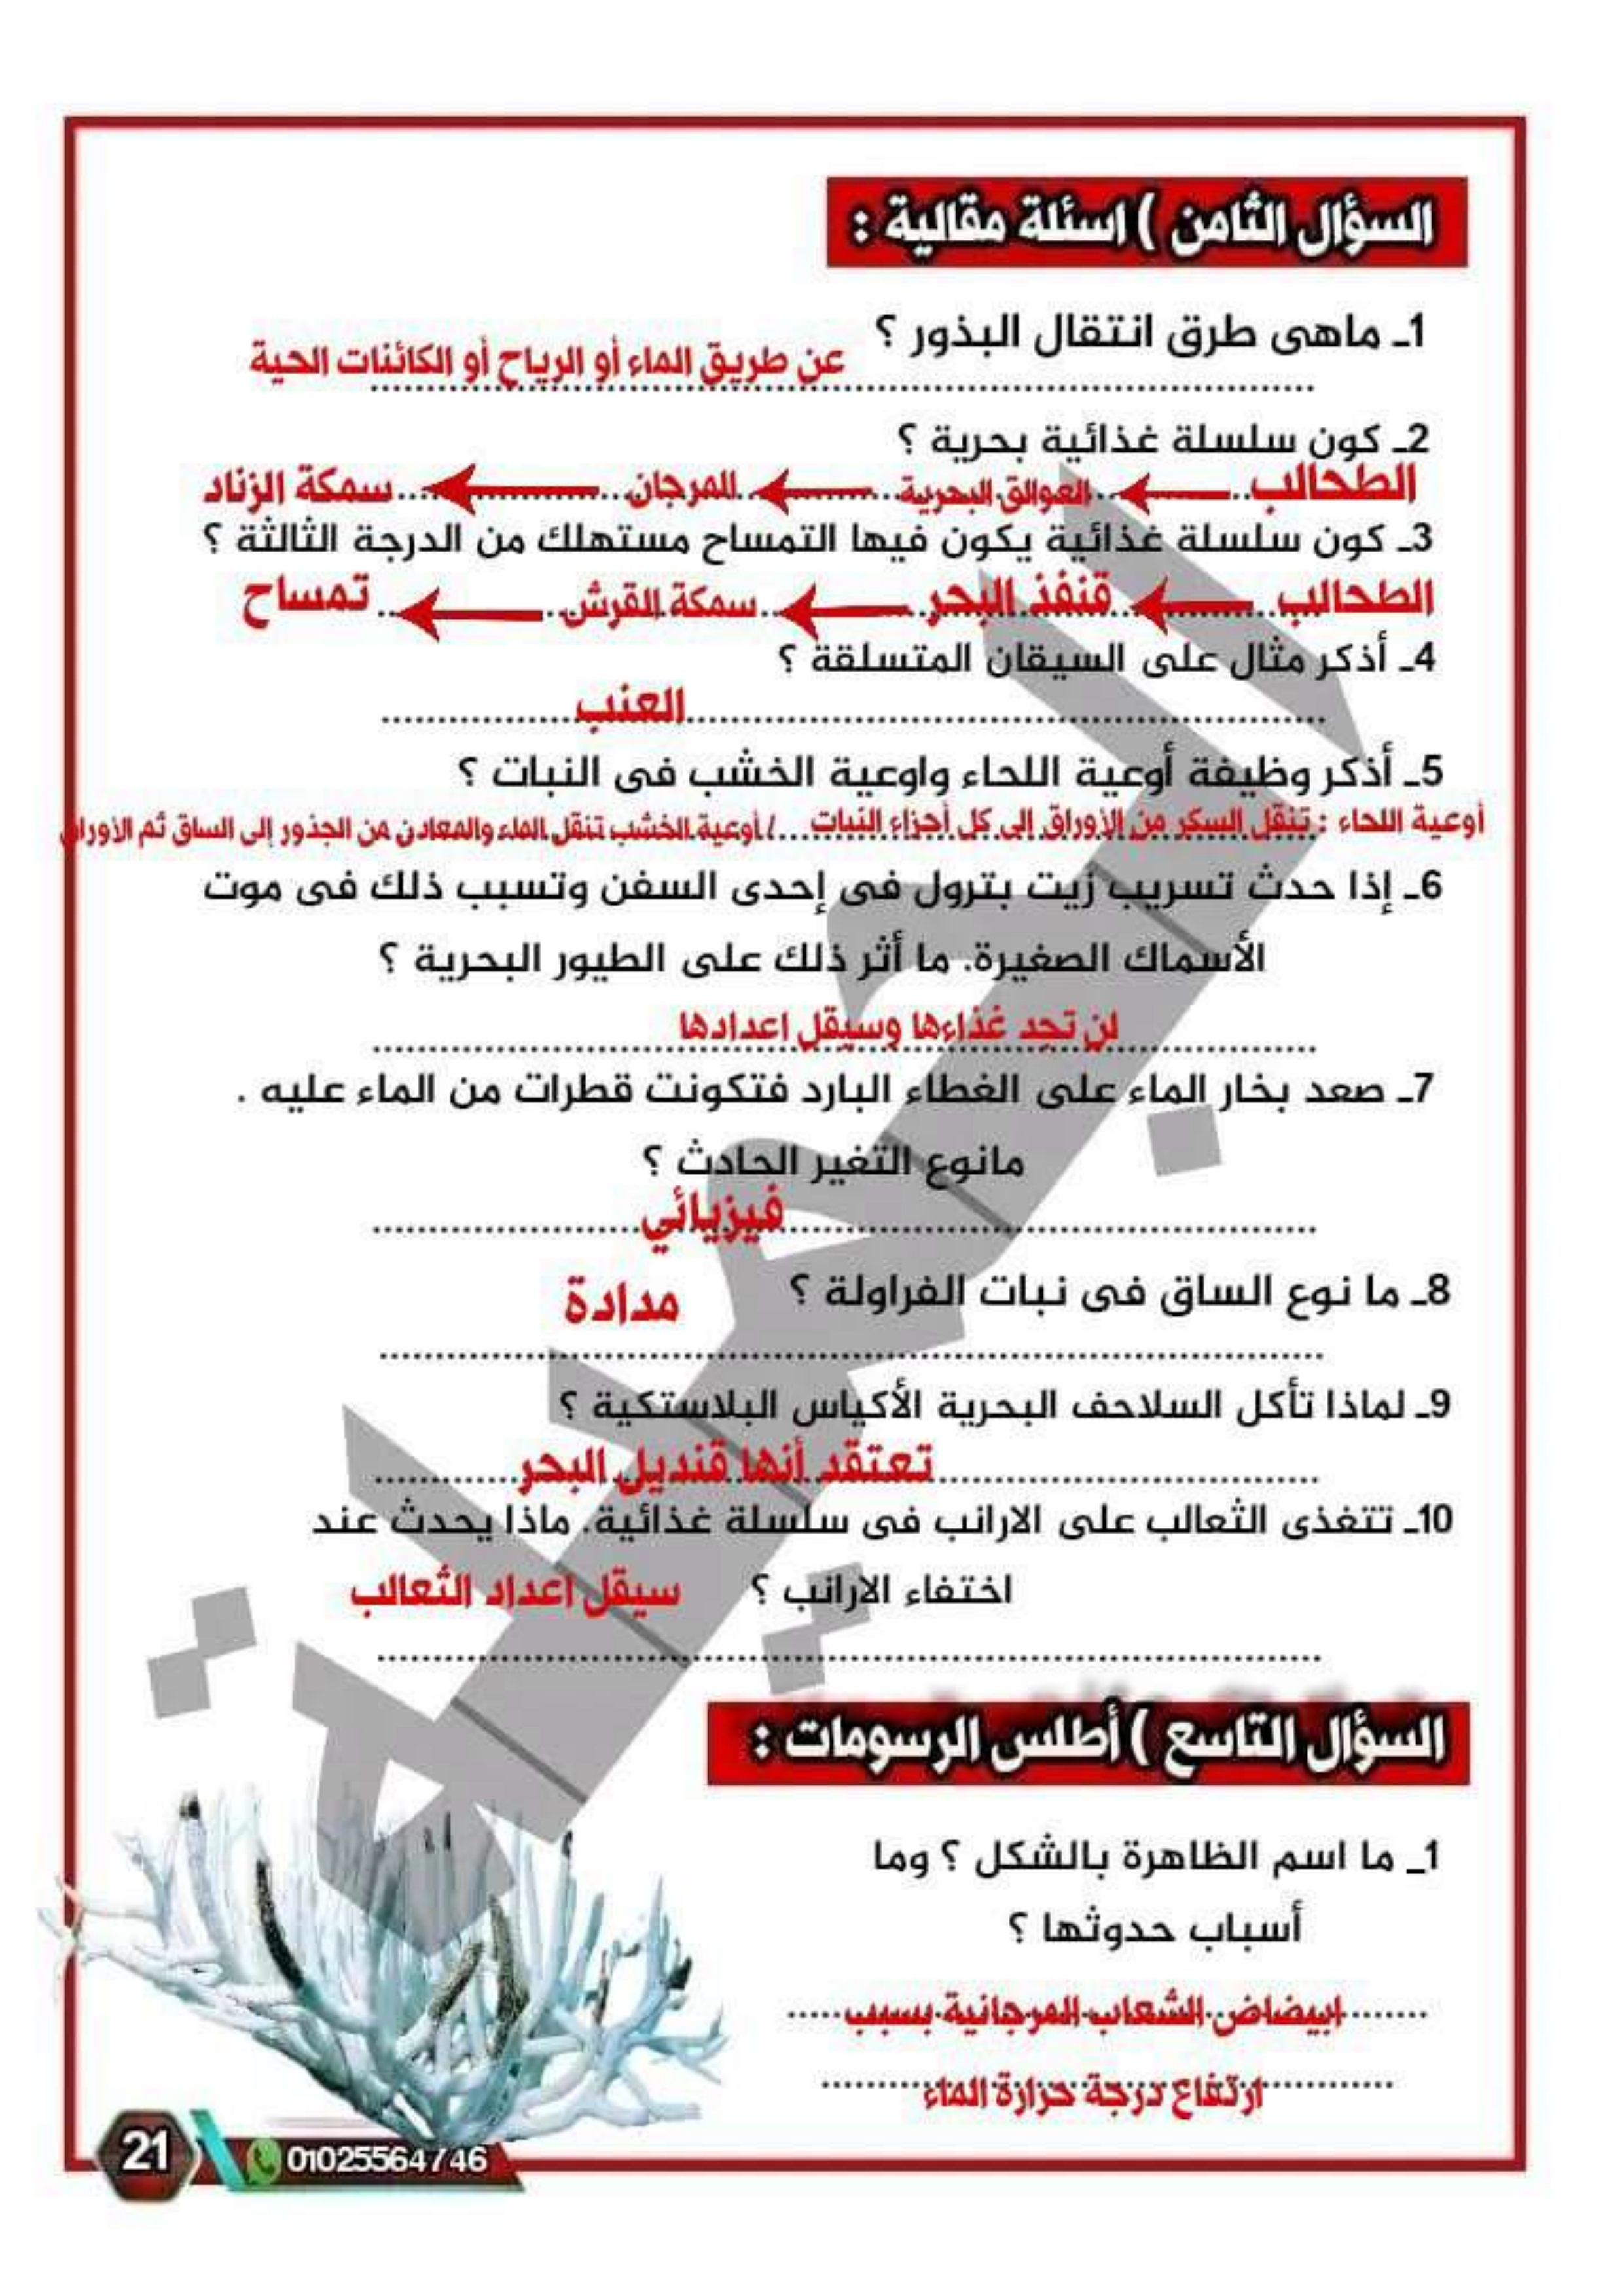 السؤال الثامن ) اسئلة مقالية :
1ـ ماهى طرق انتقال البذور ؟
عن طريق الماء أو الرياح أو الكائنات الحية
2ـ كون سلسلة غذائية بحرية ؟
الطحالب العوالق البحرية المرجان سمكة الزناد
3ـ كون سلسلة غذائية يكون فيها التمساح مستهلك من الدرجة الثالثة ؟
الطحالب قنفذ البحر سمكة القرش تمساح
4ـ أذكر مثال على السيقان المتسلقة ؟
العنب
5ـ أذكر وظيفة أوعية اللحاء واوعية الخشب فى النبات ؟
أوعية اللحاء : تنقل السكر من الأوراق إلى كل أجزاء النبات / أوعية الخشب تنقل الماء والمعادن من الجذور إلى الساق ثم الأوراق
6ـ إذا حدث تسريب زيت بترول فى إحدى السفن وتسبب ذلك فى موت
الأسماك الصغيرة. ما أثر ذلك على الطيور البحرية ؟
لن تجد غذاءها وسيقل اعدادها
7ـ صعد بخار الماء على الغطاء البارد فتكونت قطرات من الماء عليه .
مانوع التغير الحادث ؟
فيزيائي
8ـ ما نوع الساق فى نبات الفراولة ؟ مدادة
9ـ لماذا تأكل السلاحف البحرية الأكياس البلاستكية ؟
تعتقد أنها قنديل البحر
10ـ تتغذى الثعالب على الارانب فى سلسلة غذائية. ماذا يحدث عند
اختفاء الارانب ؟ سيقل اعداد الثعالب
السؤال التاسع ) أطلس الرسومات :
1_ ما اسم الظاهرة بالشكل ؟ وما
أسباب حدوثها ؟
ابيضاض الشعاب المرجانية بسبب
ارتفاع درجة حرارة الماء
21
01025564746